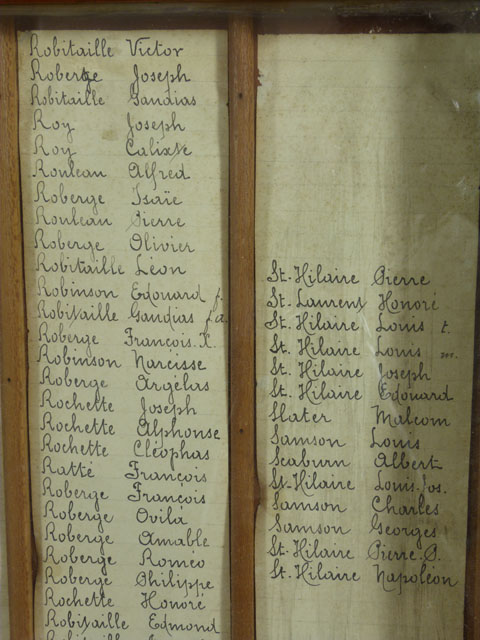 Robitaille Victor
Roberge Joseph
Robitaille Gaudias
Roy Joseph
Roy Calixte
Rouleau Alfred
Roberge Isaïe
Rouleau Pierre
Roberge Olivier
Robitaille Léon
Robinson Edouard
Robitaille Gaudias
Roberge François X.
Robinson Narcisse
Roberge Argélas
Rochette Joseph
Rochette Alphonse
Rochette Cléophas
Ratté François
Roberge François
Roberge Ovila
Roberge Amable
Roberge Roméo
Roberge Philippe
Rochette Honoré
Robitaille Edmond
Robitaille
St. Hilaire Pierre
St. Laurent Honoré
St. Hilaire Louis t.
St. Hilaire Louis m.
St. Hilaire Joseph
St. Hilaire Edouard
Slater Malcom
Samson Louis
Seaburn Albert
St. Hilaire Louis Jos.
Samson Charles
Samson Georges
St. Hilaire Pierre P.
St. Hilaire Napoléon